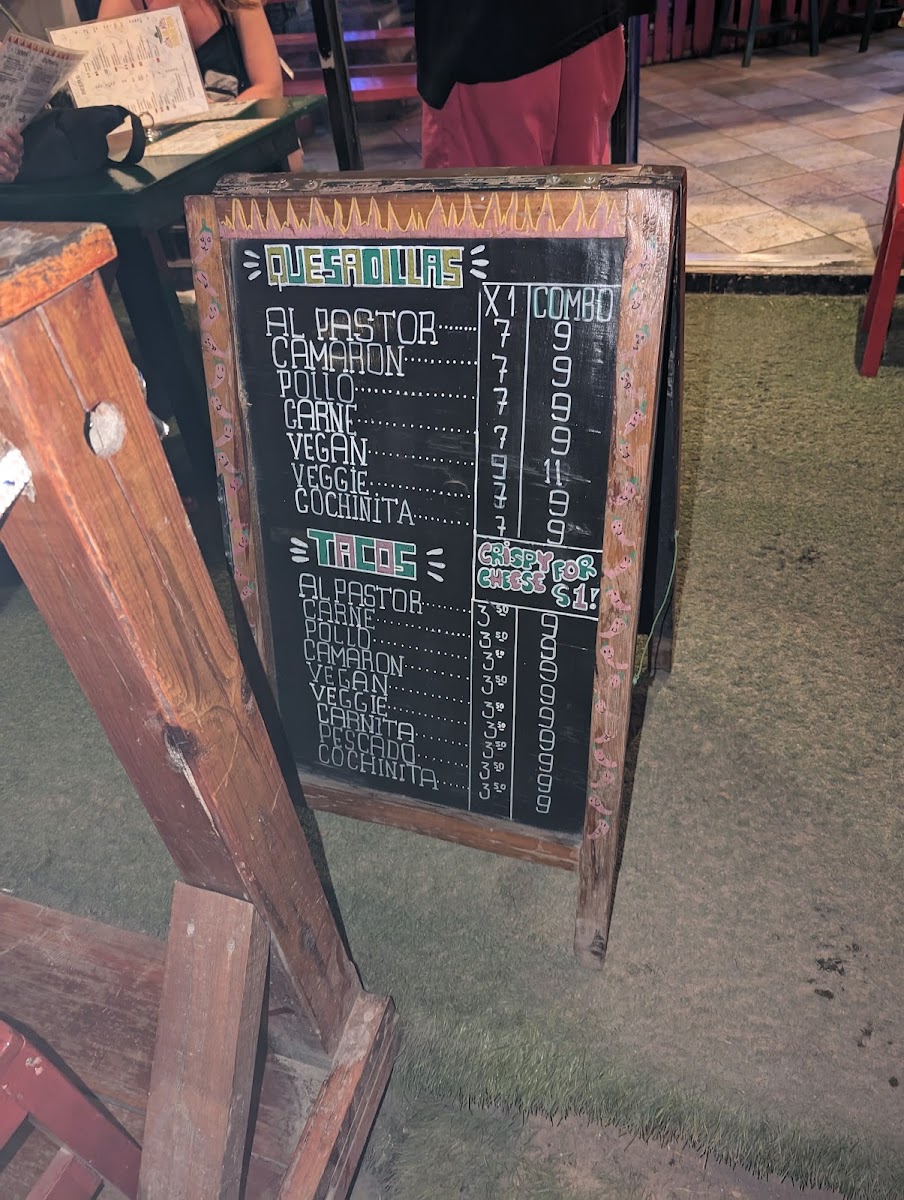 QUESADILLAS
X1 COMBO
AL PASTOR........ 7 9
CAMARON.......... 7 9
POLLO............... 7 9
CARNE............. 7 9
VEGAN............. 9 11
VEGGIE............ 7 9
COCHINITA....... 7 9
TACOS
CRISPY FOR
CHEESE $1!
AL PASTOR....... 3.50 9
CARNE............. 3.50 9
POLLO............. 3.50 9
CAMARON......... 3.50 9
VEGAN............ 3.50 9
VEGGIE........... 3.50 9
CARNITA.......... 3.50 9
PESCADO......... 3.50 9
COCHINITA..... 3.50 9